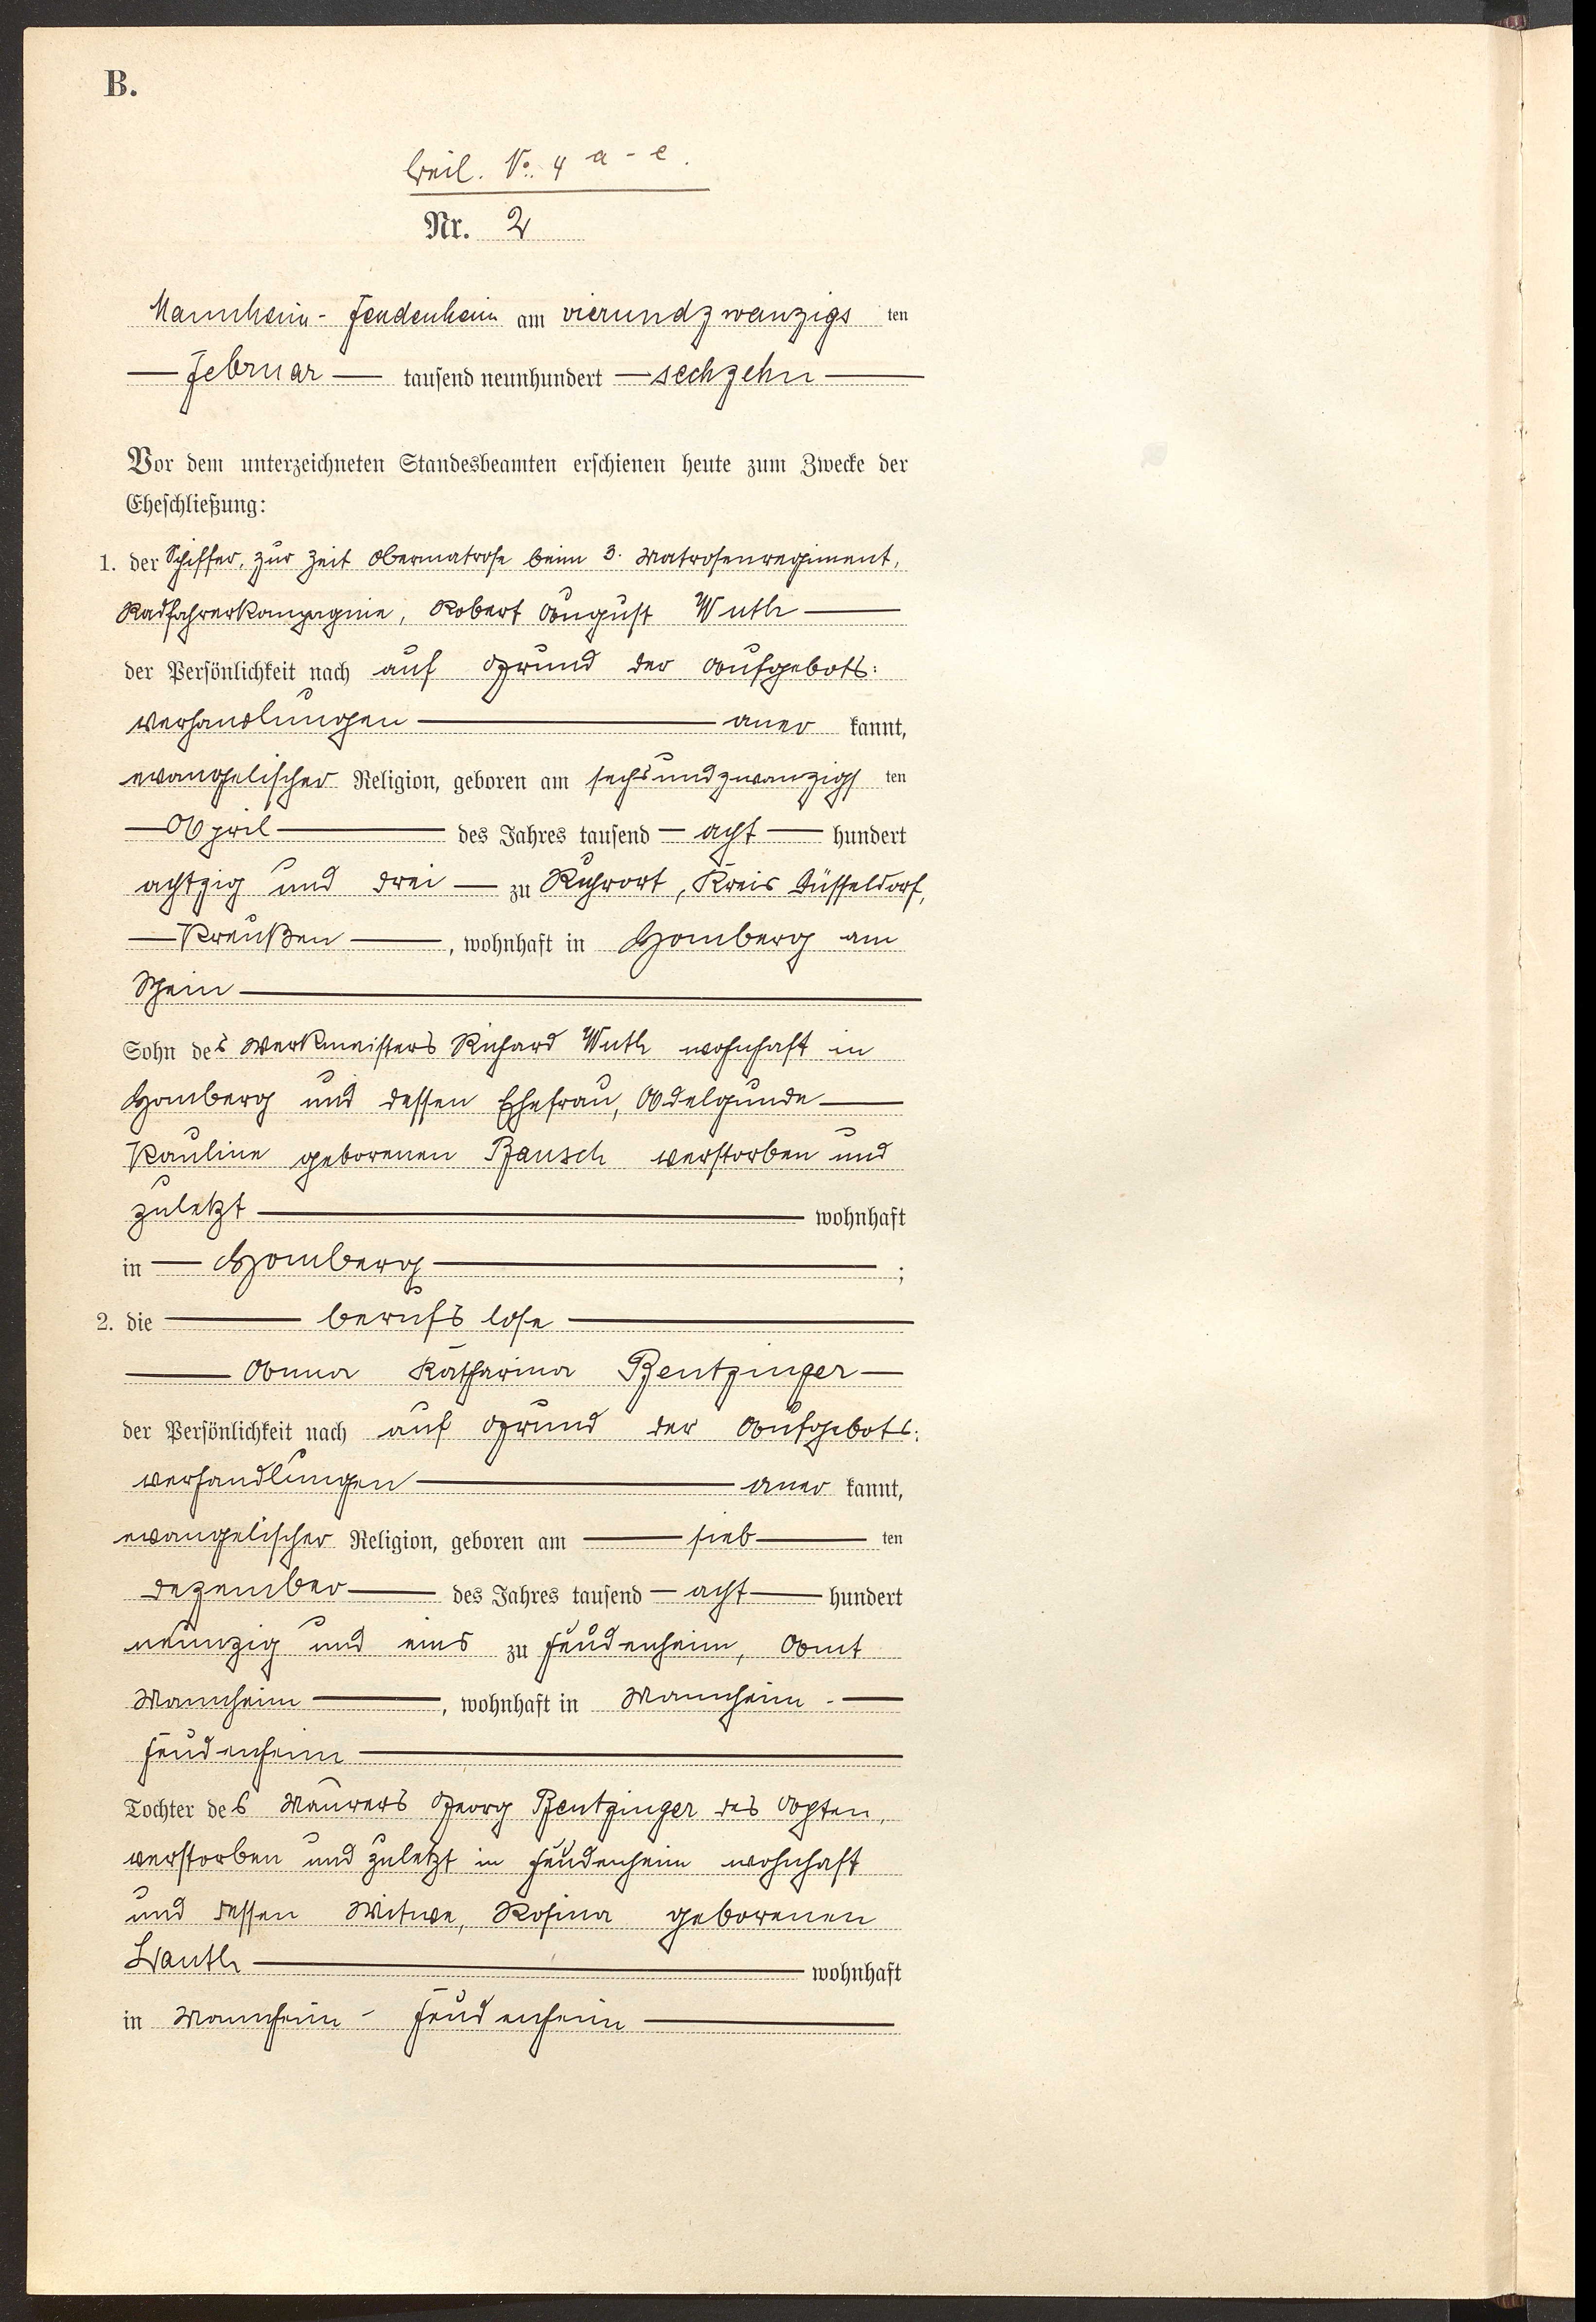 B.
Beil. No. 4 a-e.
Nr. 2
Mannheim-Feudenheim am vierundzwanzigs ten
— Februar — tausend neunhundert — sechzehn —
Vor dem unterzeichneten Standesbeamten erschienen heute zum Zwecke der
Eheschließung:
1. der Schiffer, zur Zeit Obermatrose beim 3. Matrosenregiment,
Radfahrerkompagnie, Robert August Wuth —
der Persönlichkeit nach auf Grund der Aufgebots:
verhandlungen — aner kannt,
evangelischer Religion, geboren am sechsundzwanzigs ten
— April — des Jahres tausend — acht — hundert
achtzig und drei — zu Ruhrort, Kreis Düsseldorf,
— Preußen —, wohnhaft in Homberg am
Rhein —
Sohn des Werkmeisters Richard Wuth wohnhaft in
Homberg und dessen Ehefrau, Adelgunde —
Pauline geborenen Bausch verstorben und
zuletzt — wohnhaft
in — Homberg — ;
2. die — berufslose —
— Anna Katharina Bentzinger —
der Persönlichkeit nach auf Grund der Aufgebots:
verhandlungen — aner kannt,
evangelischer Religion, geboren am — sieb — ten
Dezember — des Jahres tausend — acht — hundert
neunzig und eins zu Feudenheim, Amt
Mannheim —, wohnhaft in Mannheim - —
Feudenheim —
Tochter des Maurers Georg Bentzinger des
verstorben und zuletzt in Feudenheim wohnhaft
und dessen Witwe, Rosina geborenen
— wohnhaft
in Mannheim - Feudenheim —